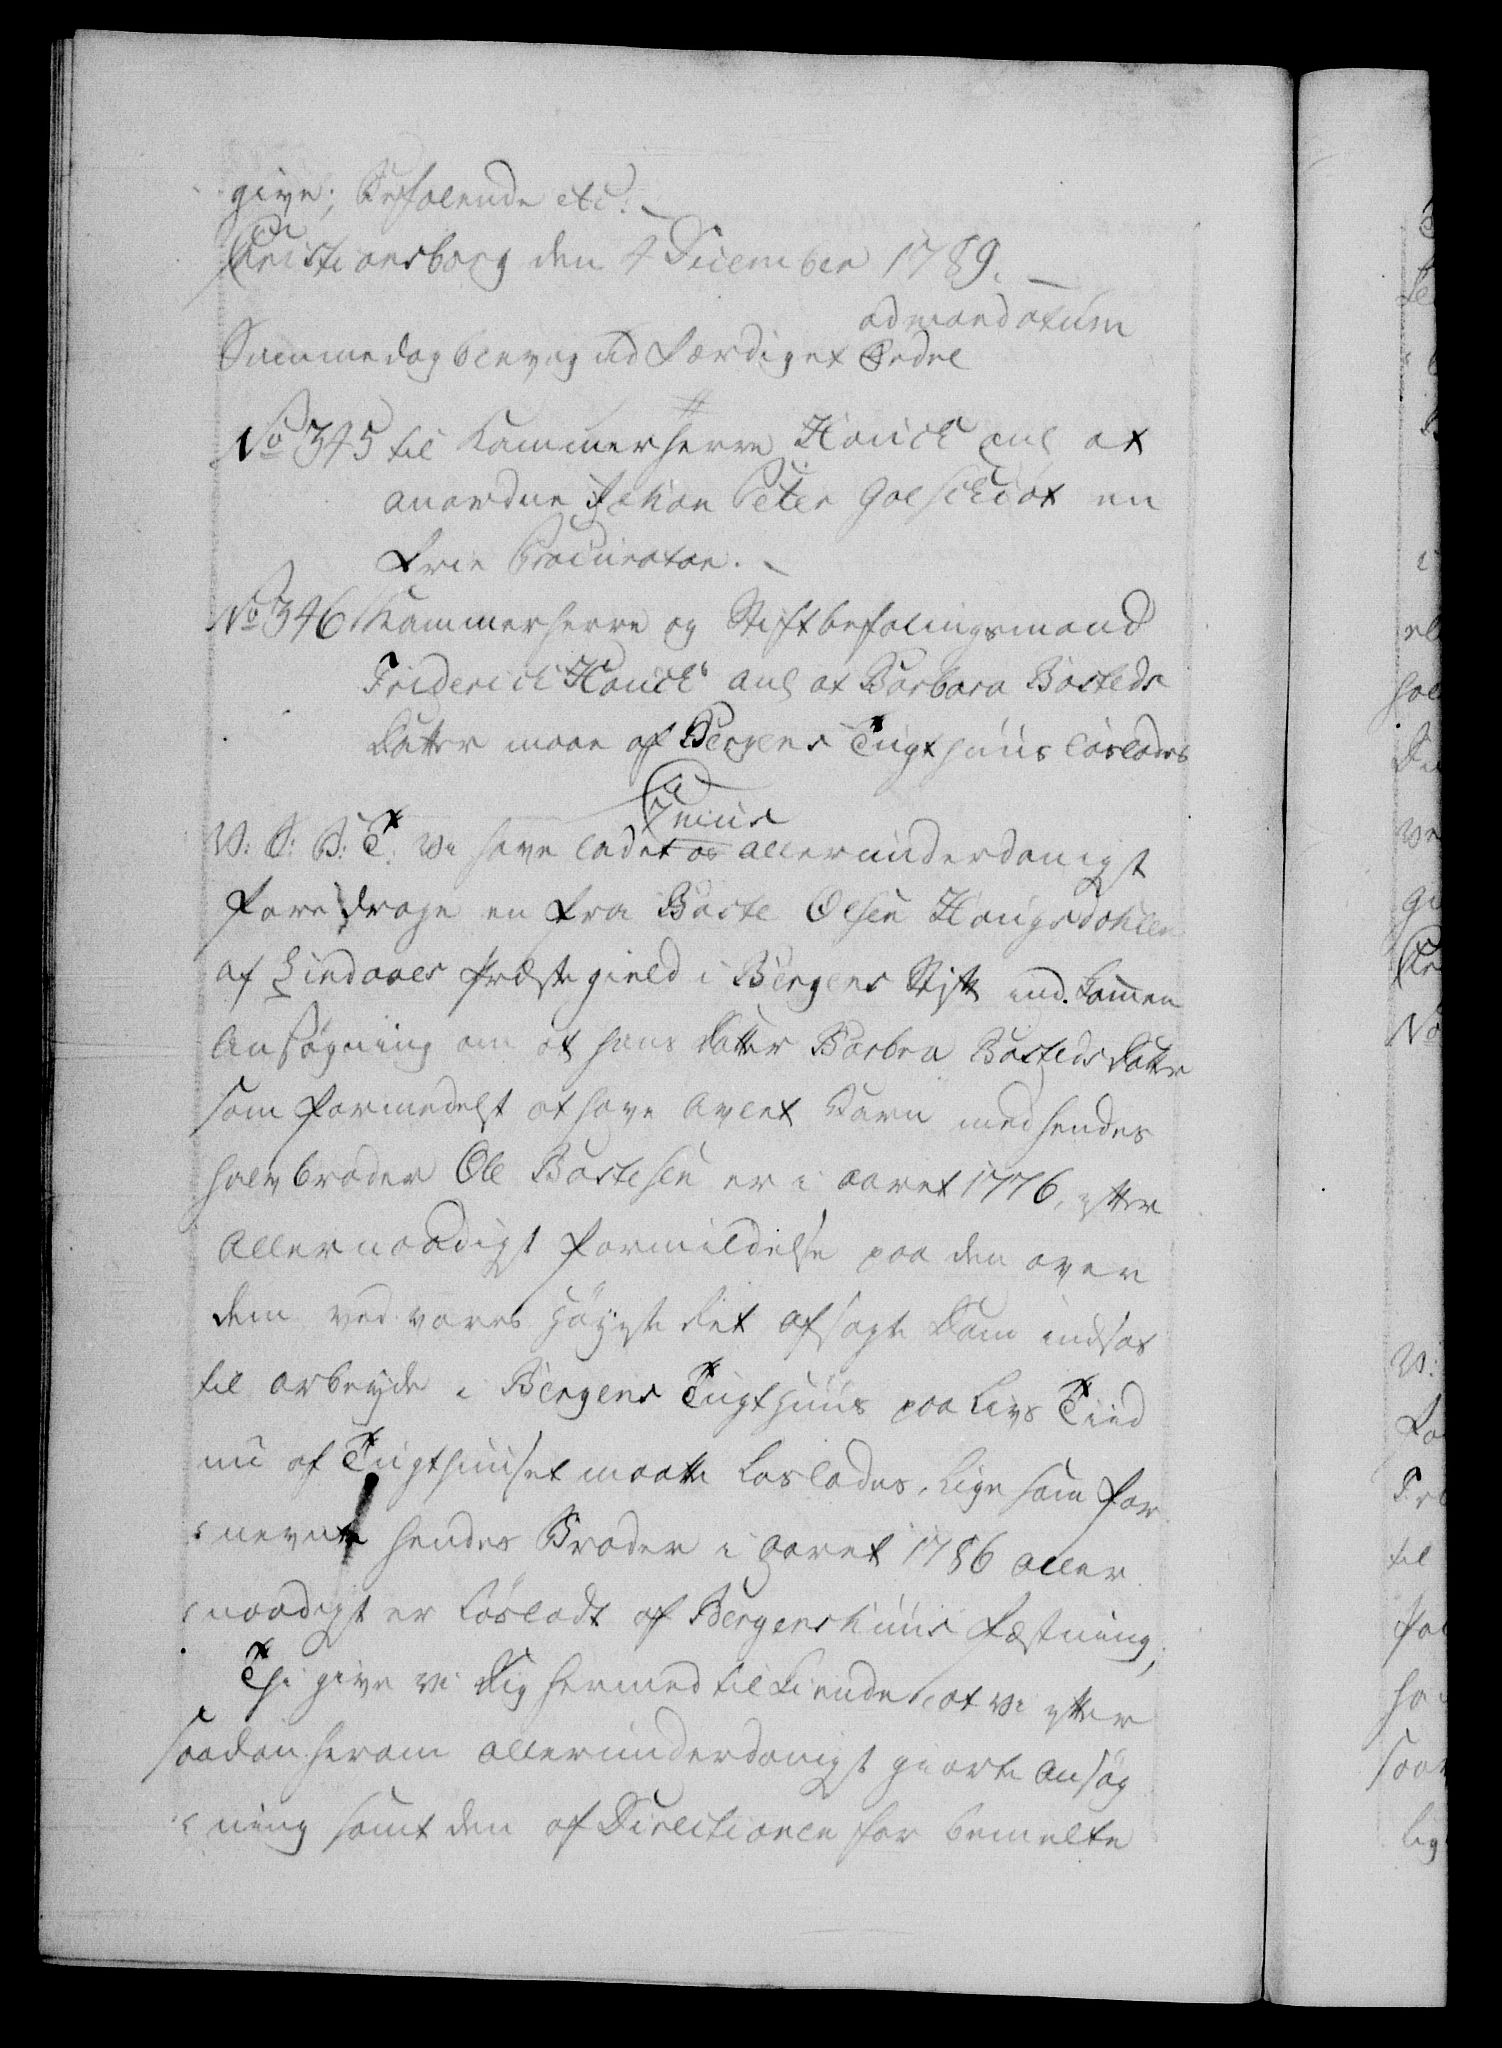 give; Befalende etc:
Christiansborg den 4 December 1789.
ad mandatum
Samme dag blev og udfærdiget Ordre
No 345 til Kammerherre Hauch anl at
anordne Johan Peter Golschiöt en
frie Procurator.
No 346 Kammerherre og Stiftbefalingsmand
Friderich Hauch anl at Barbara Bósteds
Datter maae af Bergens Tugthuus löslades
C 7mus
V: S: B: T: Vi have ladet os allerunderdanigst
foredrage en fra Böste Olsen Haugsdahlen
af Lindaaes Præstegield i Bergens Stift ind kommen
Ansögning om at hans Datter Barbra Bösteds Datter
som formedelst at have Avlet Barn med hendes
halvbroder Ole Böstesen er i aaret 1776, efter
Allernaadigst Formildelse paa den over
dem ved vores Höyeste Ret afsagte Dom indsat
til arbeyde i Bergens Tugthuus paa Livs Tiid
nu af Tugthuuset maatte Loslades, ligesom for
nevnte hendes Broder i Aaret 1786 aller
naadigst er Lösladt af Bergenshuus Fæstning,
Thi give vi Dig hermed tilkiende, at Vi efter
saadan herom allerunderdanigst giorte Ansög
ning samt den af Directionen for bemelte